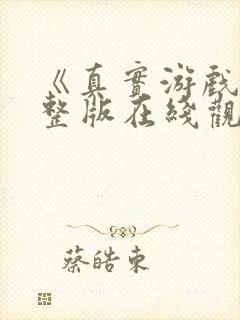 《真實游戲
整版在綫觀
蔡皓東